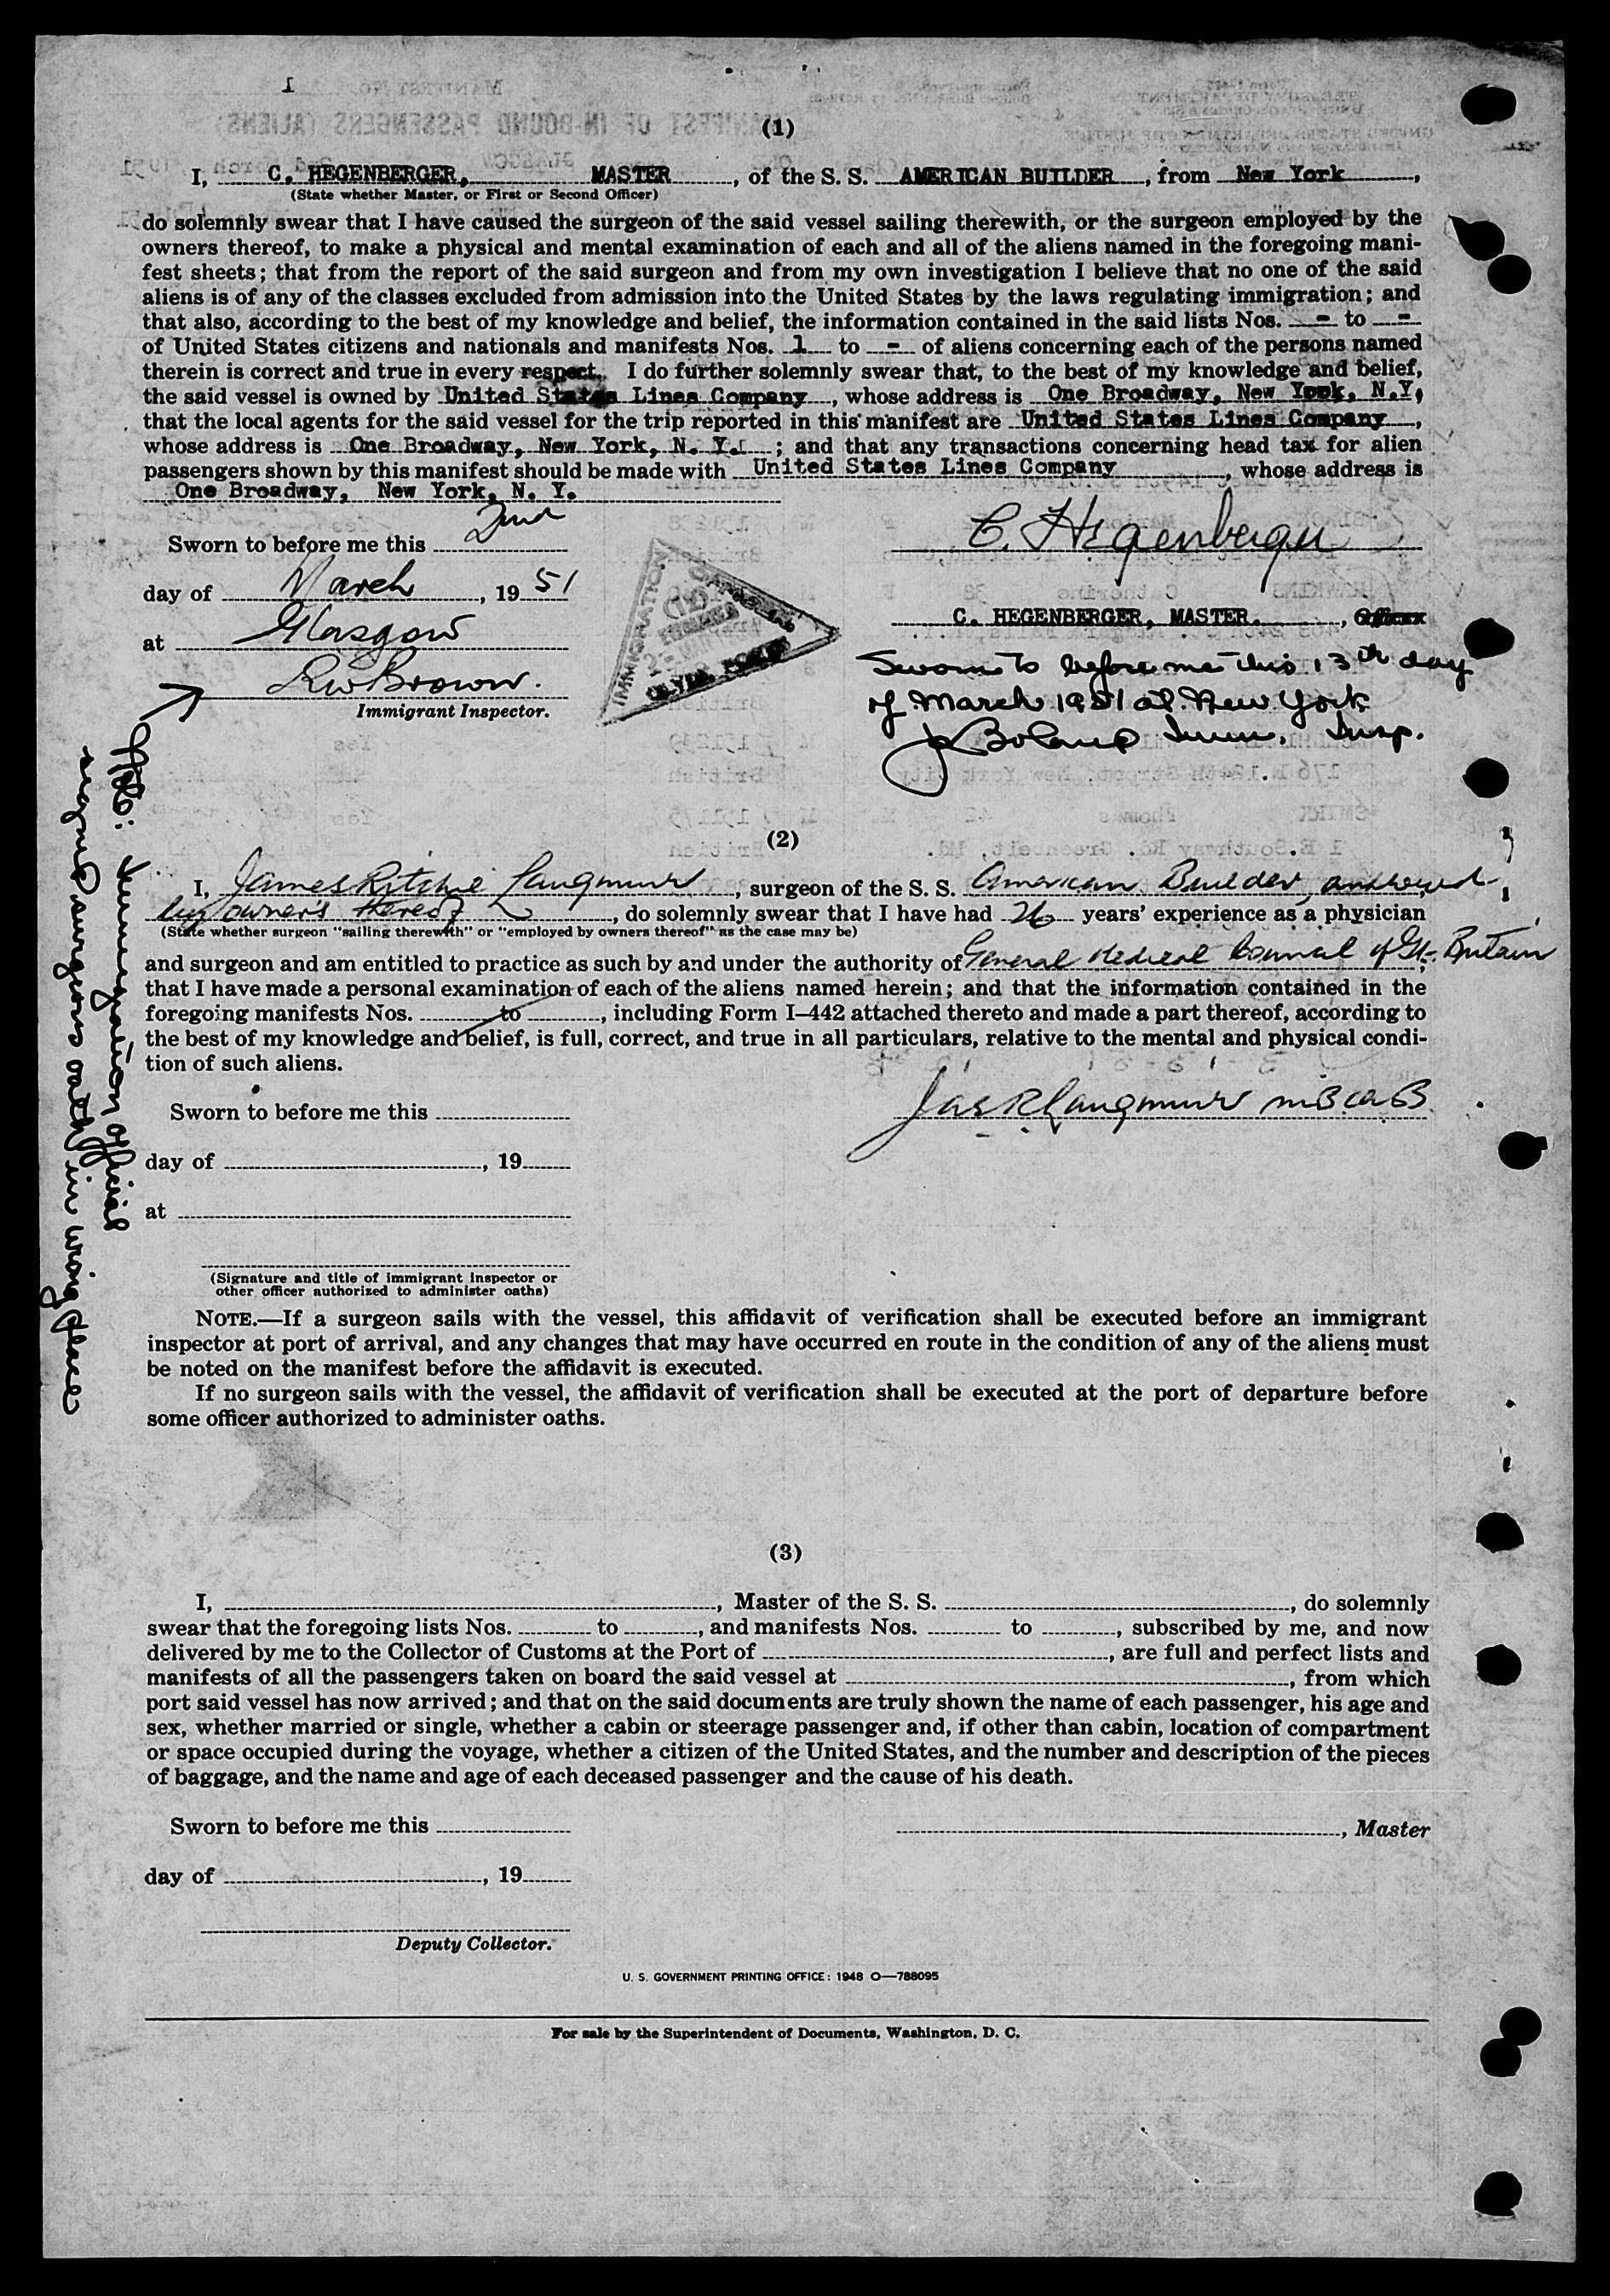 (1)
I, C. HEGENBERGER, MASTER, of the S. S. AMERICAN BUILDER, from New York,
(State whether Master, or First or Second Officer)
do solemnly swear that I have caused the surgeon of the said vessel sailing therewith, or the surgeon employed by the
owners thereof, to make a physical and mental examination of each and all of the aliens named in the foregoing mani-
fest sheets; that from the report of the said surgeon and from my own investigation I believe that no one of the said
aliens is of any of the classes excluded from admission into the United States by the laws regulating immigration; and
that also, according to the best of my knowledge and belief, the information contained in the said lists Nos. - to -
of United States citizens and nationals and manifests Nos. 1 to - of aliens concerning each of the persons named
therein is correct and true in every respect. I do further solemnly swear that, to the best of my knowledge and belief,
the said vessel is owned by United States Lines Company, whose address is One Broadway, New York, N.Y,
that the local agents for the said vessel for the trip reported in this manifest are United States Lines Company,
whose address is One Broadway, New York, N. Y.; and that any transactions concerning head tax for alien
passengers shown by this manifest should be made with United States Lines Company, whose address is
One Broadway, New York, N. Y.
Sworn to before me this 2nd
C. Hegenberger
day of March, 1951
C. HEGENBERGER, MASTER., Officer
at Glasgow
Sworn to before me this 13th day
of March 1951 at New York
RW Brown.
Immigrant Inspector.
J Boland Imm. Insp.
IMMIGRATION
Note: Immigration official
signed surgeons oath in wrong place
(2)
I, James Ritchie Langmuir, surgeon of the S. S. American Builder, employed
by owner's thereof, do solemnly swear that I have had 26 years' experience as a physician
(State whether surgeon "sailing therewith" or "employed by owners thereof" as the case may be)
and surgeon and am entitled to practice as such by and under the authority of General Medical Council of Gt. Britain
that I have made a personal examination of each of the aliens named herein; and that the information contained in the
foregoing manifests Nos. to, including Form I-442 attached thereto and made a part thereof, according to
the best of my knowledge and belief, is full, correct, and true in all particulars, relative to the mental and physical condi-
tion of such aliens.
Sworn to before me this
Jas R Langmuir
day of, 19
at
(Signature and title of immigrant inspector or
other officer authorized to administer oaths)
NOTE.—If a surgeon sails with the vessel, this affidavit of verification shall be executed before an immigrant
inspector at port of arrival, and any changes that may have occurred en route in the condition of any of the aliens must
be noted on the manifest before the affidavit is executed.
If no surgeon sails with the vessel, the affidavit of verification shall be executed at the port of departure before
some officer authorized to administer oaths.
(3)
I, , Master of the S. S. , do solemnly
swear that the foregoing lists Nos. to , and manifests Nos. to , subscribed by me, and now
delivered by me to the Collector of Customs at the Port of , are full and perfect lists and
manifests of all the passengers taken on board the said vessel at , from which
port said vessel has now arrived; and that on the said documents are truly shown the name of each passenger, his age and
sex, whether married or single, whether a cabin or steerage passenger and, if other than cabin, location of compartment
or space occupied during the voyage, whether a citizen of the United States, and the number and description of the pieces
of baggage, and the name and age of each deceased passenger and the cause of his death.
Sworn to before me this
, Master
day of , 19
Deputy Collector.
U. S. GOVERNMENT PRINTING OFFICE: 1948 O—788095
For sale by the Superintendent of Documents, Washington, D. C.